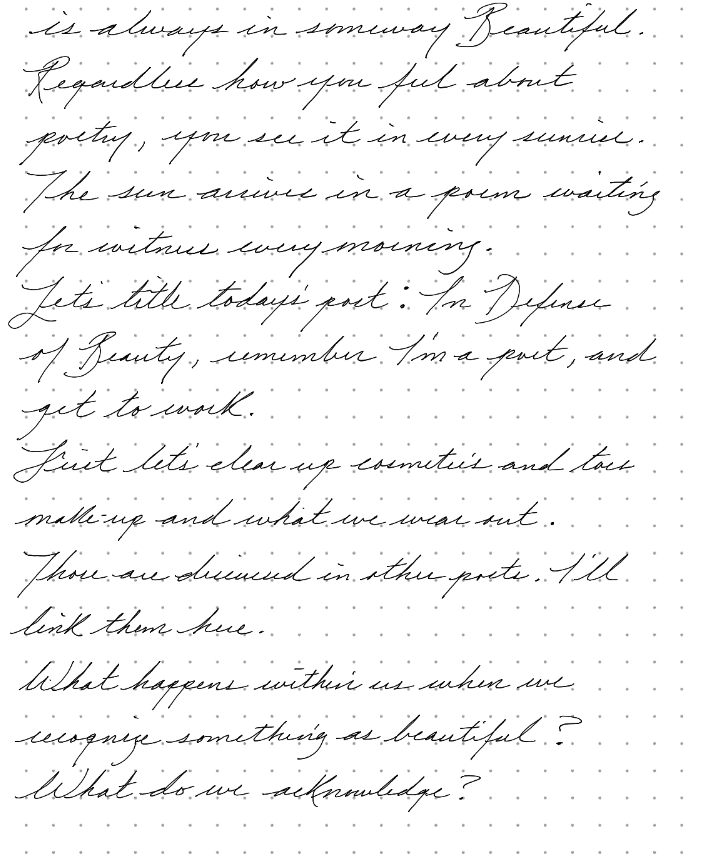 is always in someway Beautiful.
Regardless how you feel about
poetry, you see it in every sunrise.
The sun arrives in a poem waiting
for witness every morning.
Let's title today's post: In Defense
of Beauty, remember I'm a poet, and
get to work.
First let's clear up cosmetics and toss
make-up and what we wear out.
Those are discussed in other posts. I'll
link them here.
What happens within us when we
recognize something as beautiful?
What do we acknowledge?